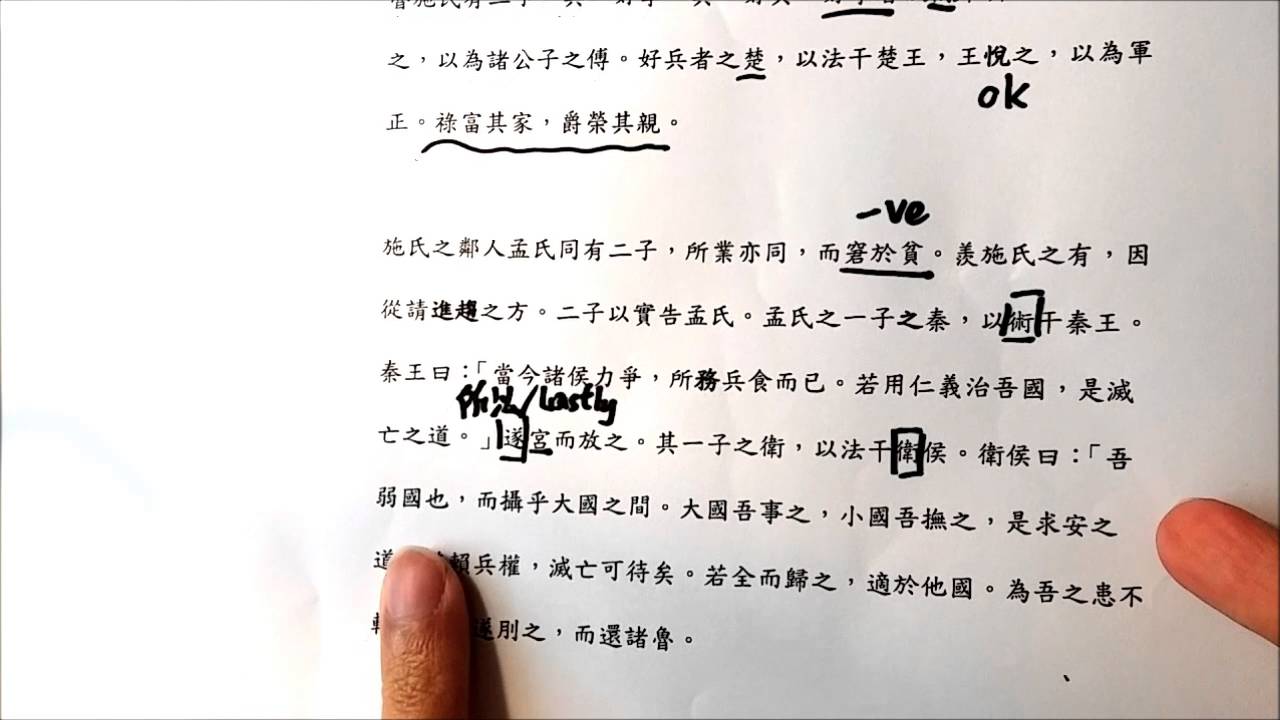 之，以為諸公子之傅。好兵者之楚，以法干楚王，王悅之，以為軍
ok
正。祿富其家，爵榮其親。
-ve
施氏之鄰人孟氏同有二子，所業亦同，而窘於貧。羨施氏之有，因
從請進趨之方。二子以實告孟氏。孟氏之一子之秦，以術干秦王。
秦王曰：「當今諸侯力爭，所務兵食而已。若用仁義治吾國，是滅
所以/lastly
亡之道。」遂宮而放之。其一子之衛，以法干衛侯。衛侯曰：「吾
弱國也，而攝乎大國之間。大國吾事之，小國吾撫之，是求安之
道 賴兵權，滅亡可待矣。若全而歸之，適於他國。為吾之患不
遂刖之，而還諸魯。